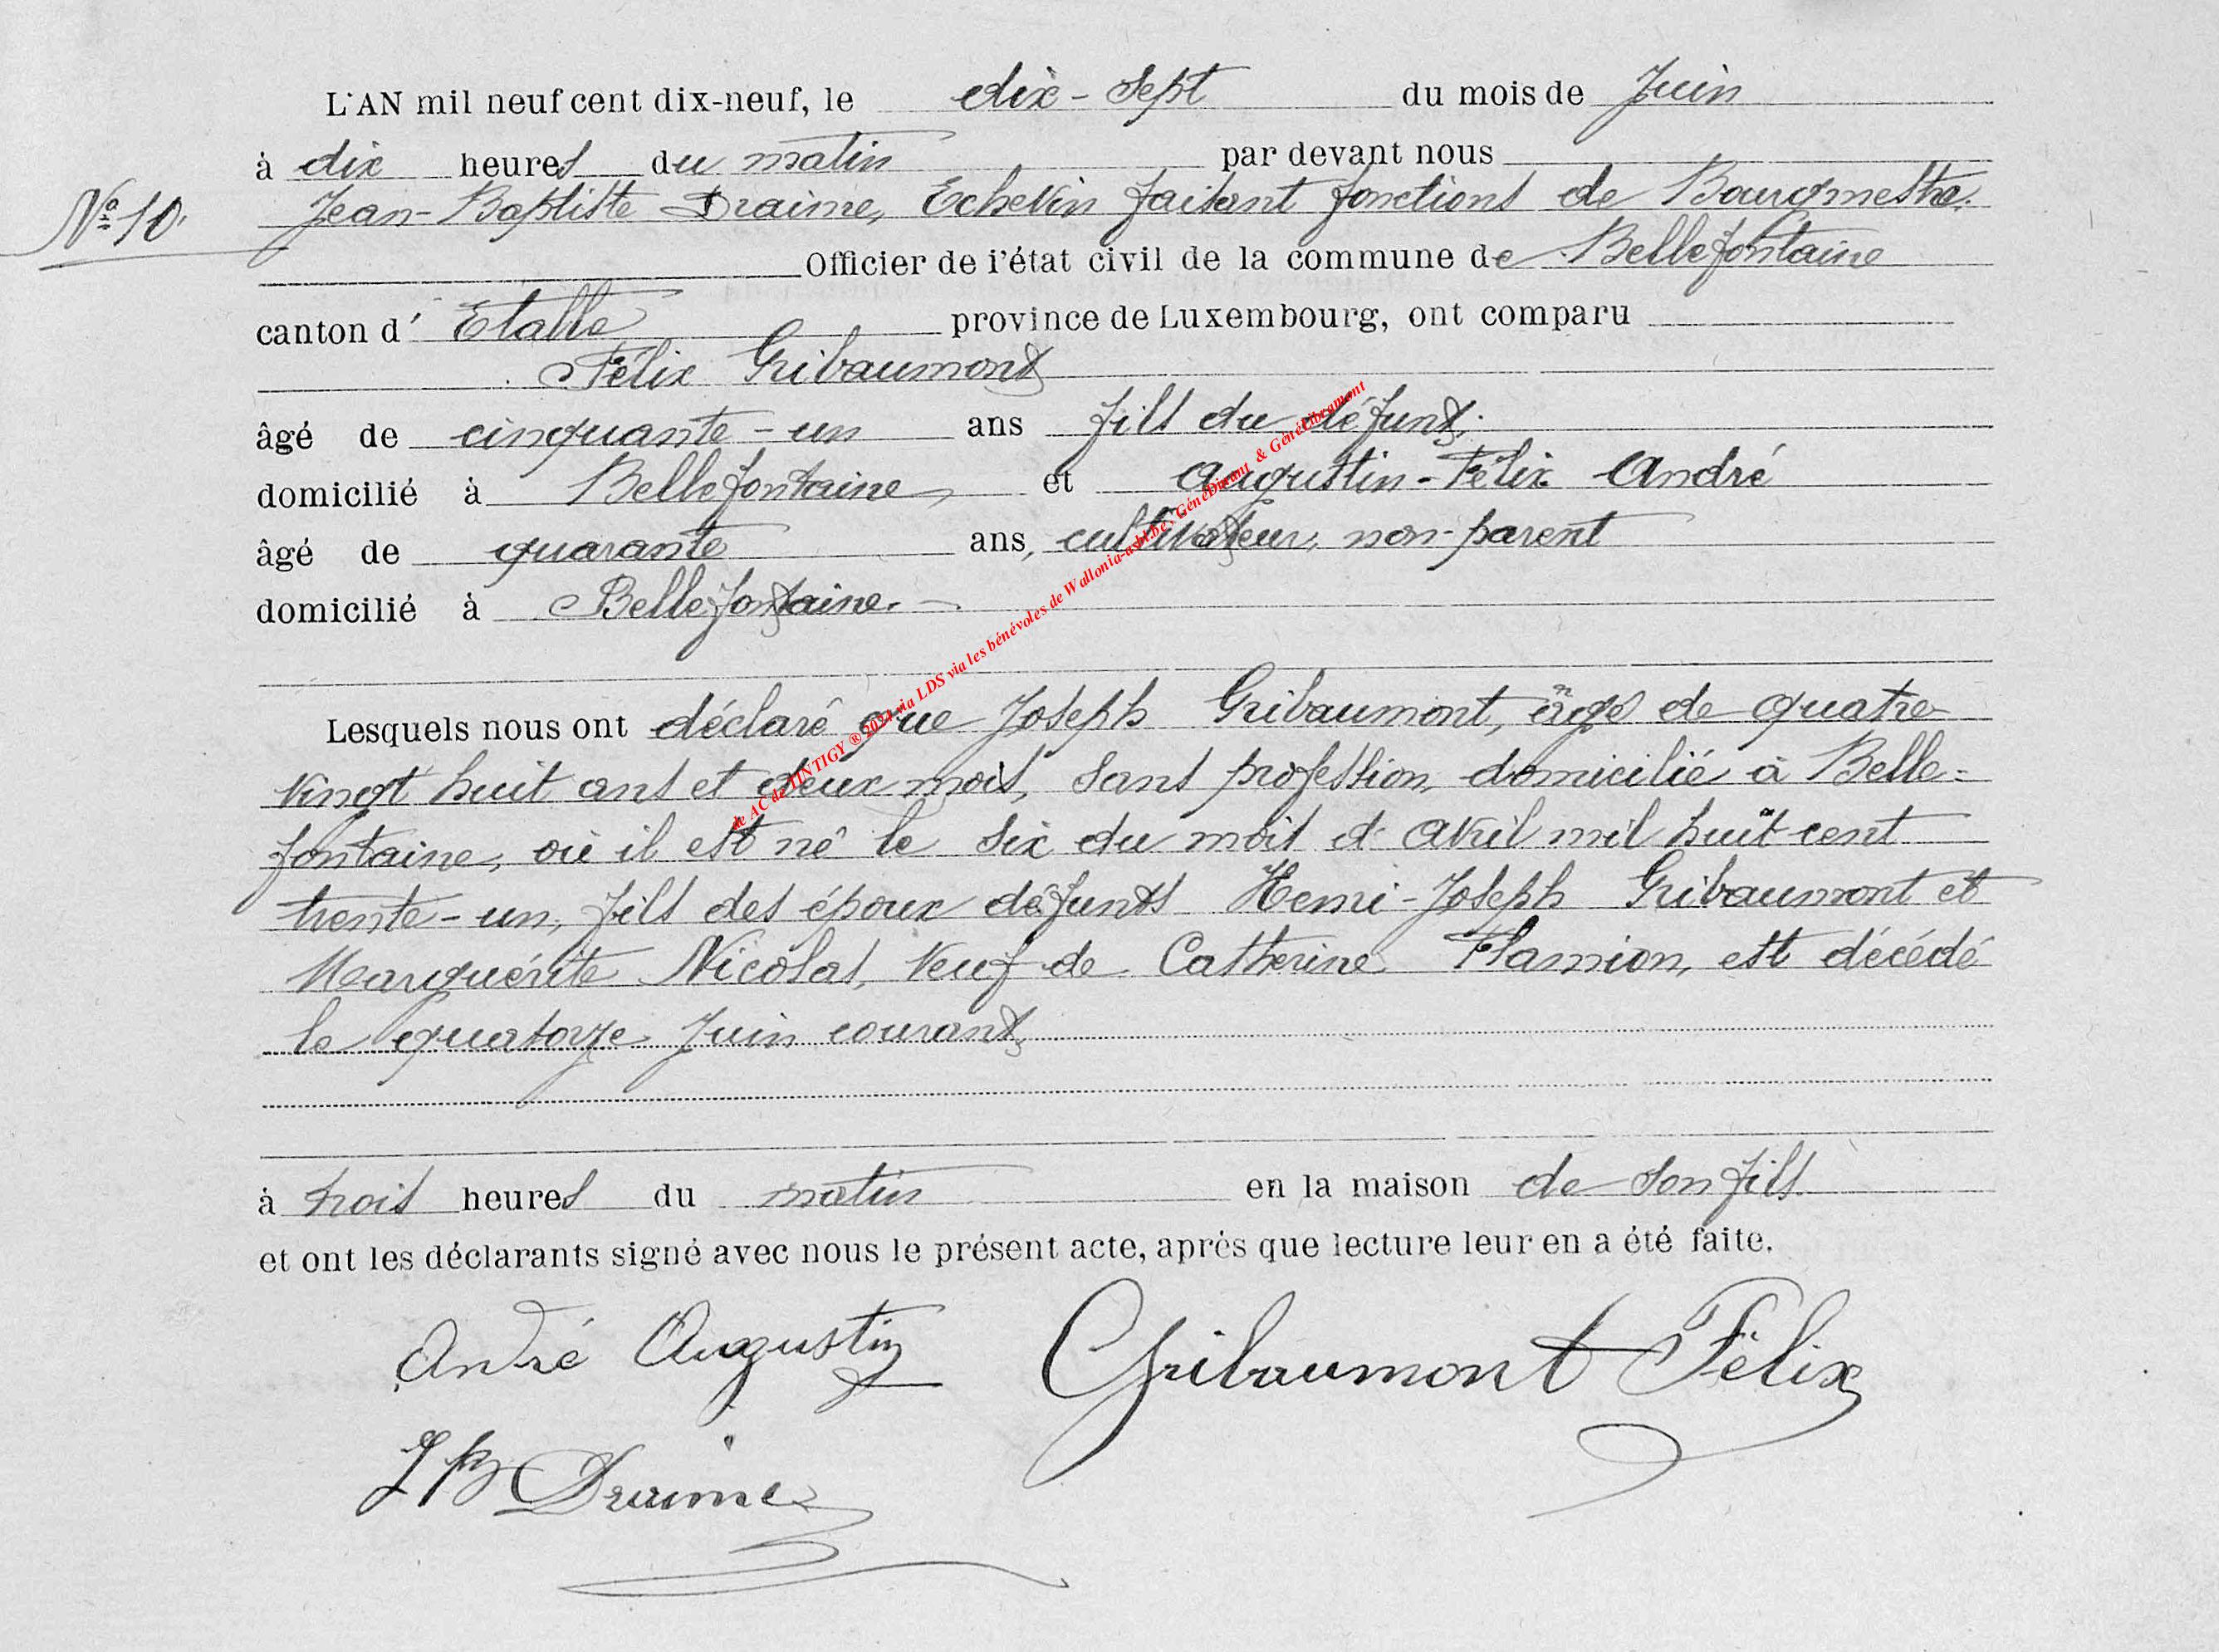 L'AN mil neuf cent dix-neuf, le dix-sept du mois de Juin
à dix heures du matin par devant nous
N° 10. Jean-Baptiste Draime, Echevin faisant fonctions de Bourgmestre.
Officier de l'état civil de la commune de Bellefontaine
canton d' Etalle province de Luxembourg, ont comparu
Félix Gribaumont
âgé de cinquante-un ans fils du défunt.
domicilié à Bellefontaine, et Augustin-Félix André
âgé de quarante ans, cultivateur, non-parent
domicilié à Bellefontaine.
Lesquels nous ont déclaré que Joseph Gribaumont, âgé de quatre
vingt huit ans et deux mois, sans profession, domicilié à Belle=
fontaine, où il est né le six du mois d'avril mil huit cent
trente-un, fils des époux défunts Henri-Joseph Gribaumont et
Marguérite Nicolas, veuf de Catherine Flamion, est décédé
le quatorze Juin courant,
à trois heures du matin en la maison de son fils
et ont les déclarants signé avec nous le présent acte, après que lecture leur en a été faite.
André Augustin Gribaumont Félix
J B Draime
de AC de TINTIGY ® 2024 via LDS via les bénévoles de Wallonia-asbl.be, GénéDinant & GénéLibramont